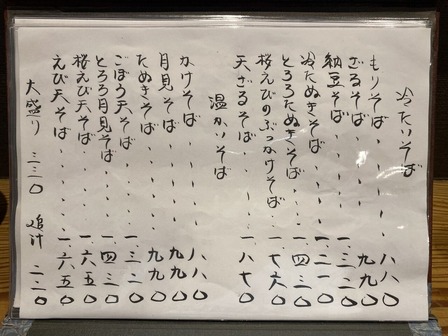 冷たいそば
もりそば 八八〇
ざるそば 九九〇
納豆そば 一、三二〇
冷たぬきそば 一、二一〇
とろろたぬきそば 一、四三〇
桜えびのぶっかけそば 一、七六〇
天ざるそば 一、八七〇
温かいそば
かけそば 八八〇
月見そば 九九〇
たぬきそば 九九〇
ごぼう天そば 一、三二〇
とろろ月見そば 一、四三〇
桜えび天そば 一、六五〇
えび天そば 一、六五〇
大盛り 三三〇 追汁 二二〇